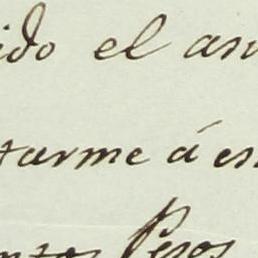 ido el an
tarme á es
ntos Pesos